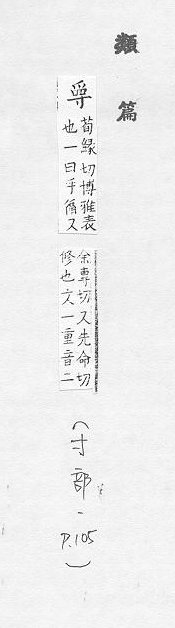 類篇
荀緣切博雅表
也一曰手循又
余專切又先命切
修也文一重音二
(寸部-P.105)